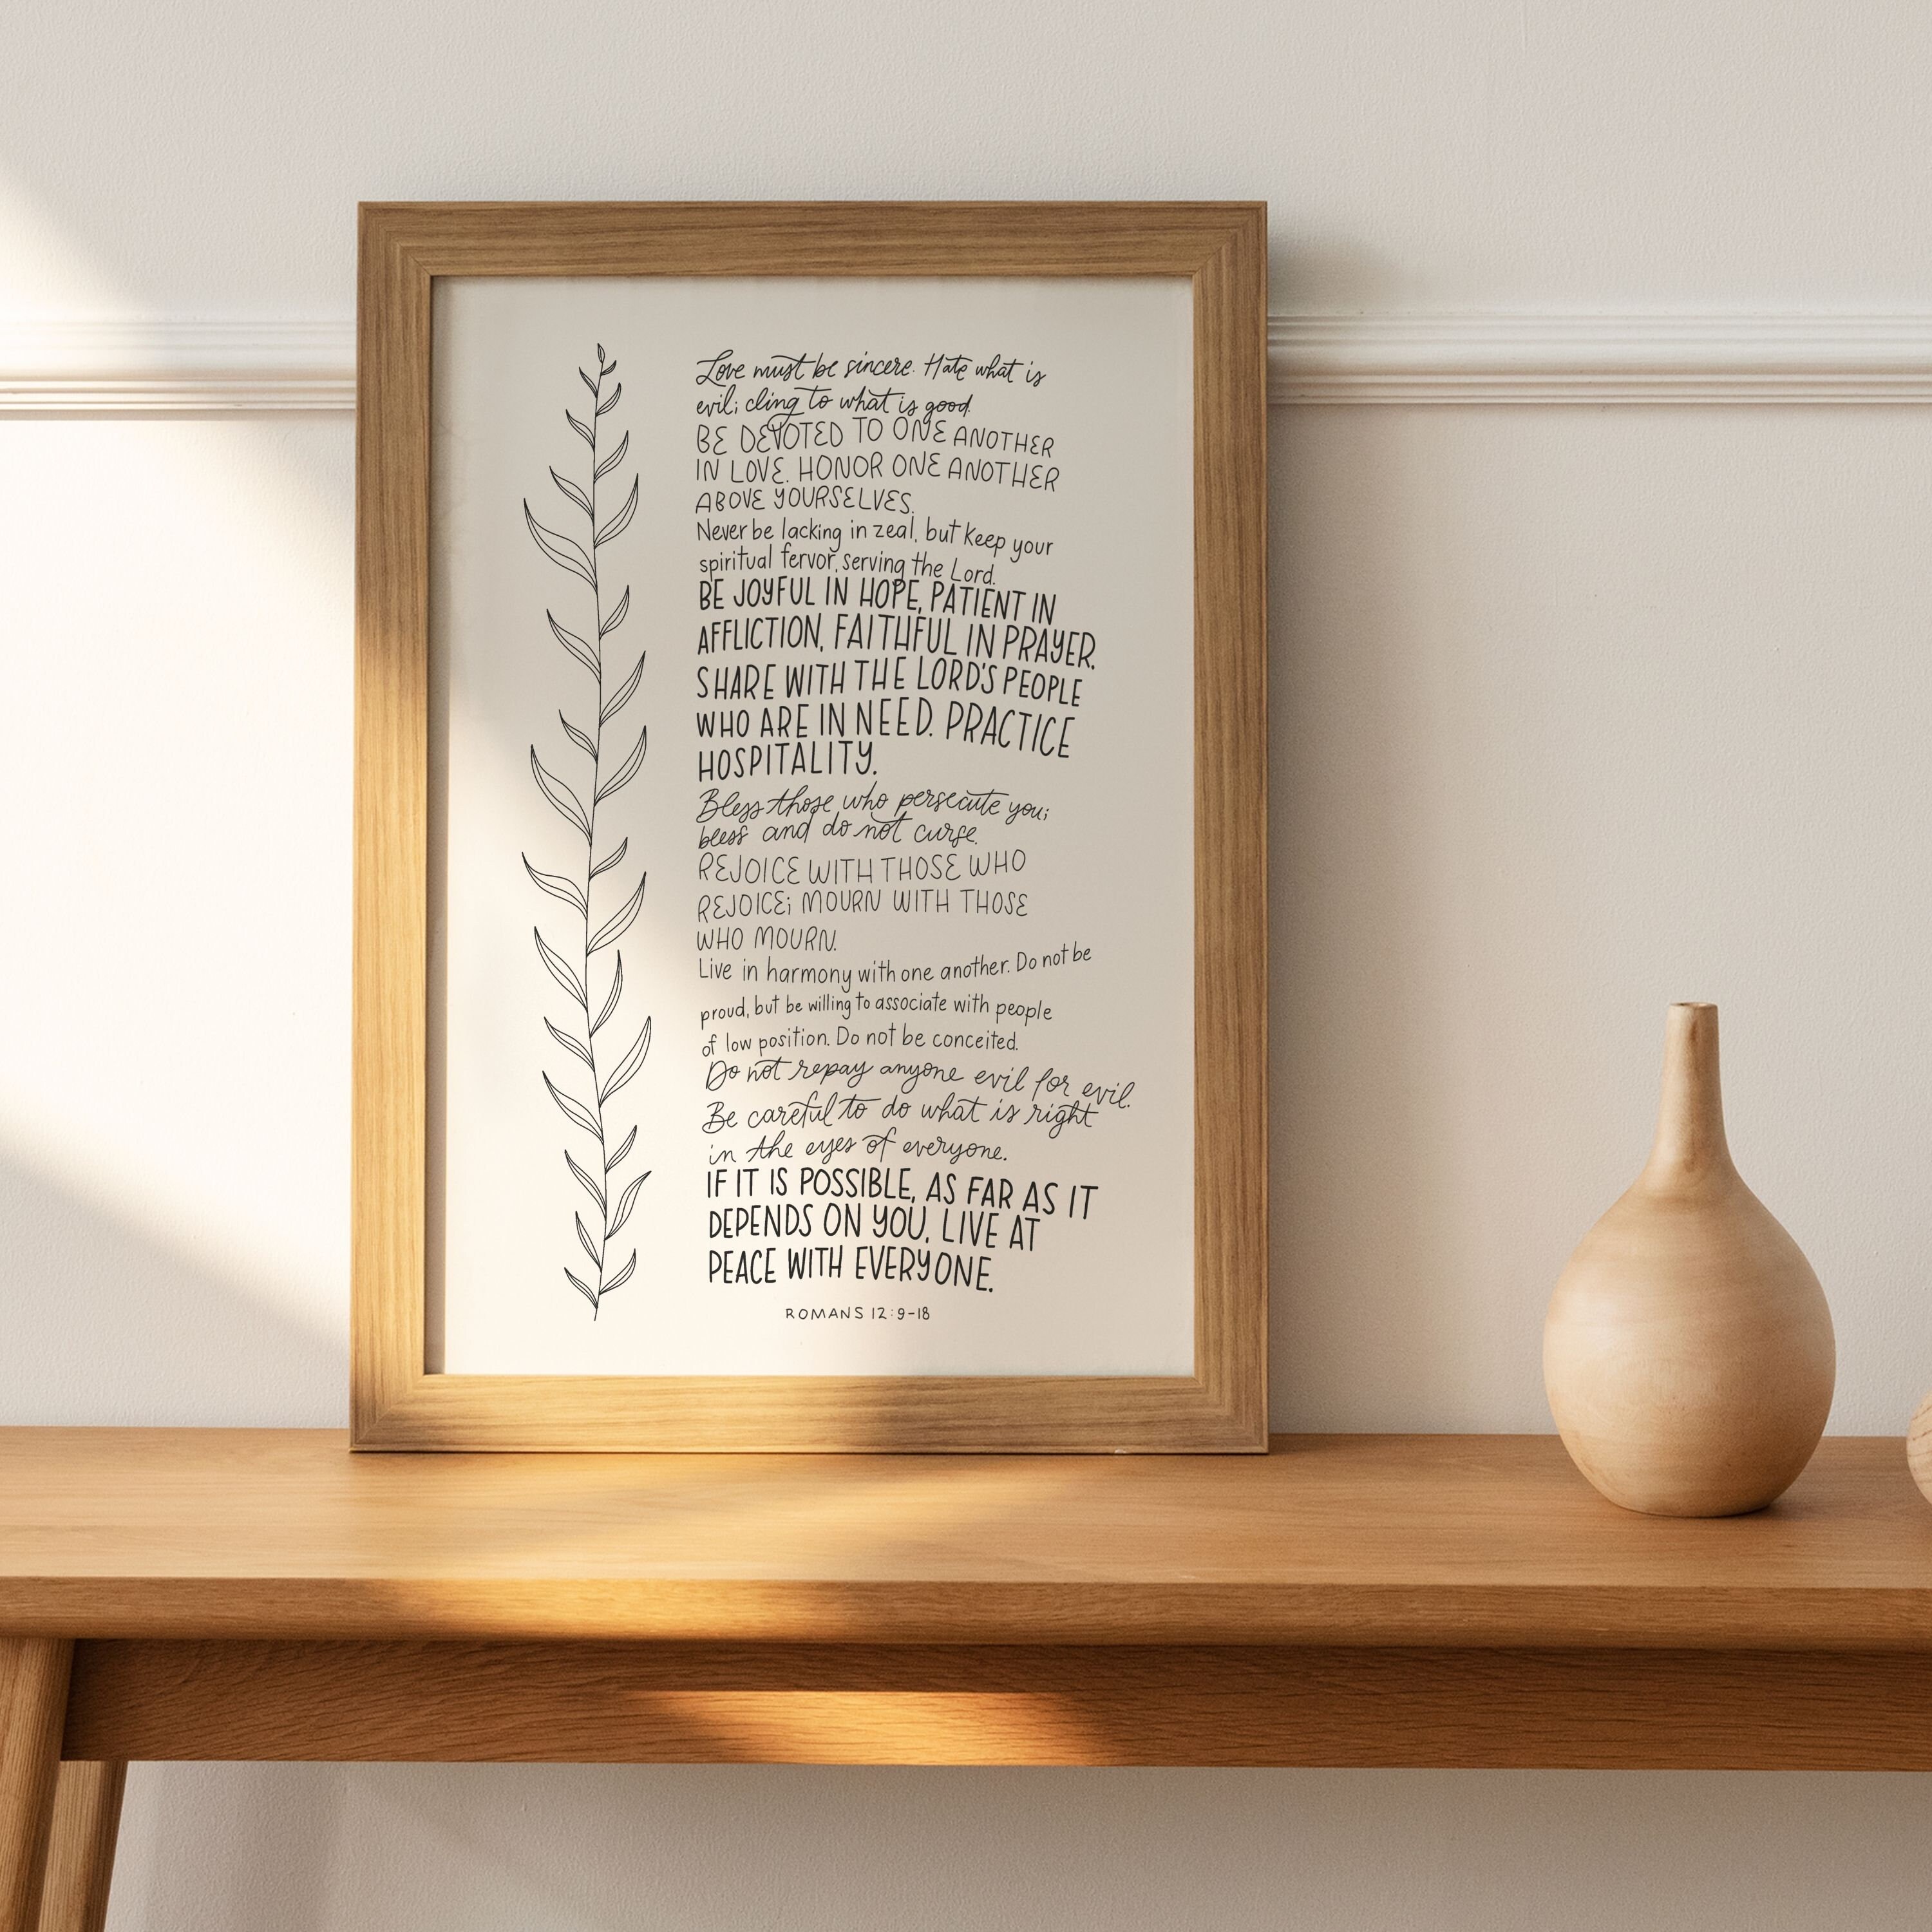 Love must be sincere. Hate what is
evil; cling to what is good.
BE DEVOTED TO ONE ANOTHER
IN LOVE. HONOR ONE ANOTHER
ABOVE YOURSELVES.
Never be lacking in zeal, but keep your
spiritual fervor, serving the Lord.
BE JOYFUL IN HOPE, PATIENT IN
AFFLICTION, FAITHFUL IN PRAYER.
SHARE WITH THE LORD'S PEOPLE
WHO ARE IN NEED. PRACTICE
HOSPITALITY.
Bless those who persecute you;
bless and do not curse.
REJOICE WITH THOSE WHO
REJOICE; MOURN WITH THOSE
WHO MOURN.
Live in harmony with one another. Do not be
proud, but be willing to associate with people
of low position. Do not be conceited.
Do not repay anyone evil for evil.
Be careful to do what is right
in the eyes of everyone.
IF IT IS POSSIBLE, AS FAR AS IT
DEPENDS ON YOU, LIVE AT
PEACE WITH EVERYONE.
ROMANS 12:9-18